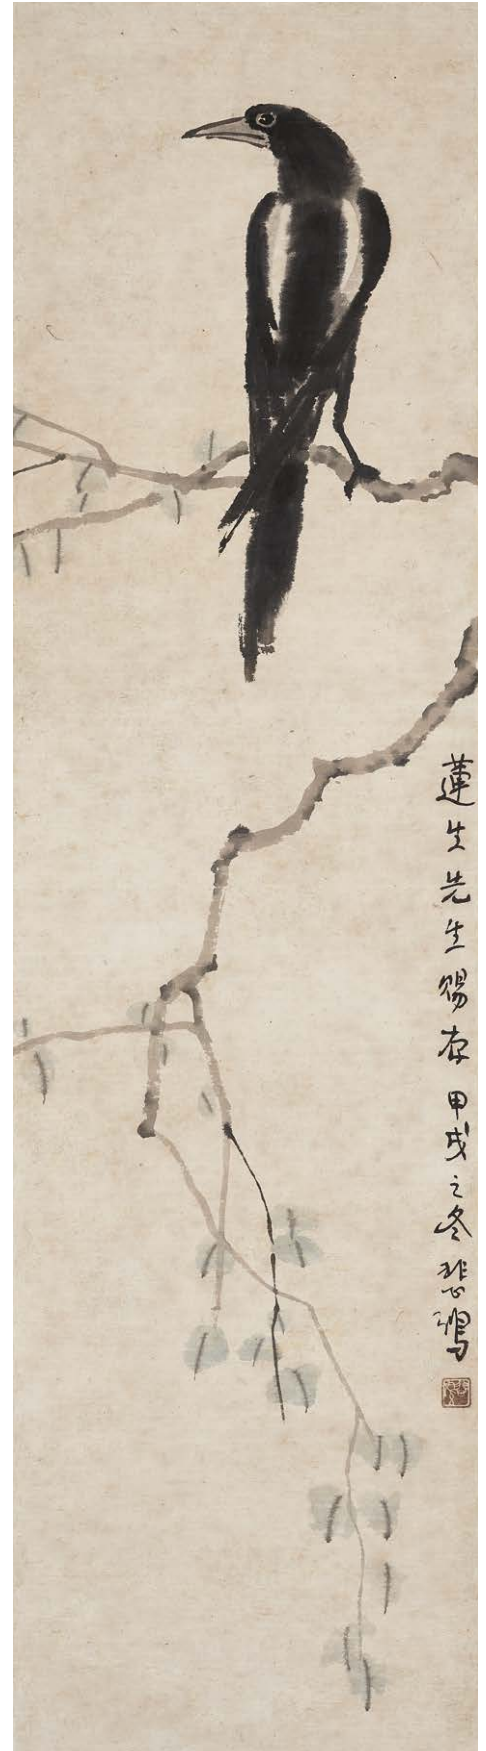 蓮生先生賜存 甲戌之冬 悲鴻